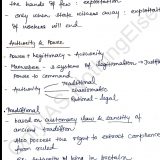 the hands of few : exploitation
- only when state withers away : exploitation
of workers will end
Authority & Power
Power + legitimacy = Authority
- 3 systems of legitimation → Justify
Power to command
→ Authority
Traditional
charismatic
Rational - legal
Traditional
- based on customary law & sanctity of
ancient tradition
- also possess the right to extract compliance
from ruled